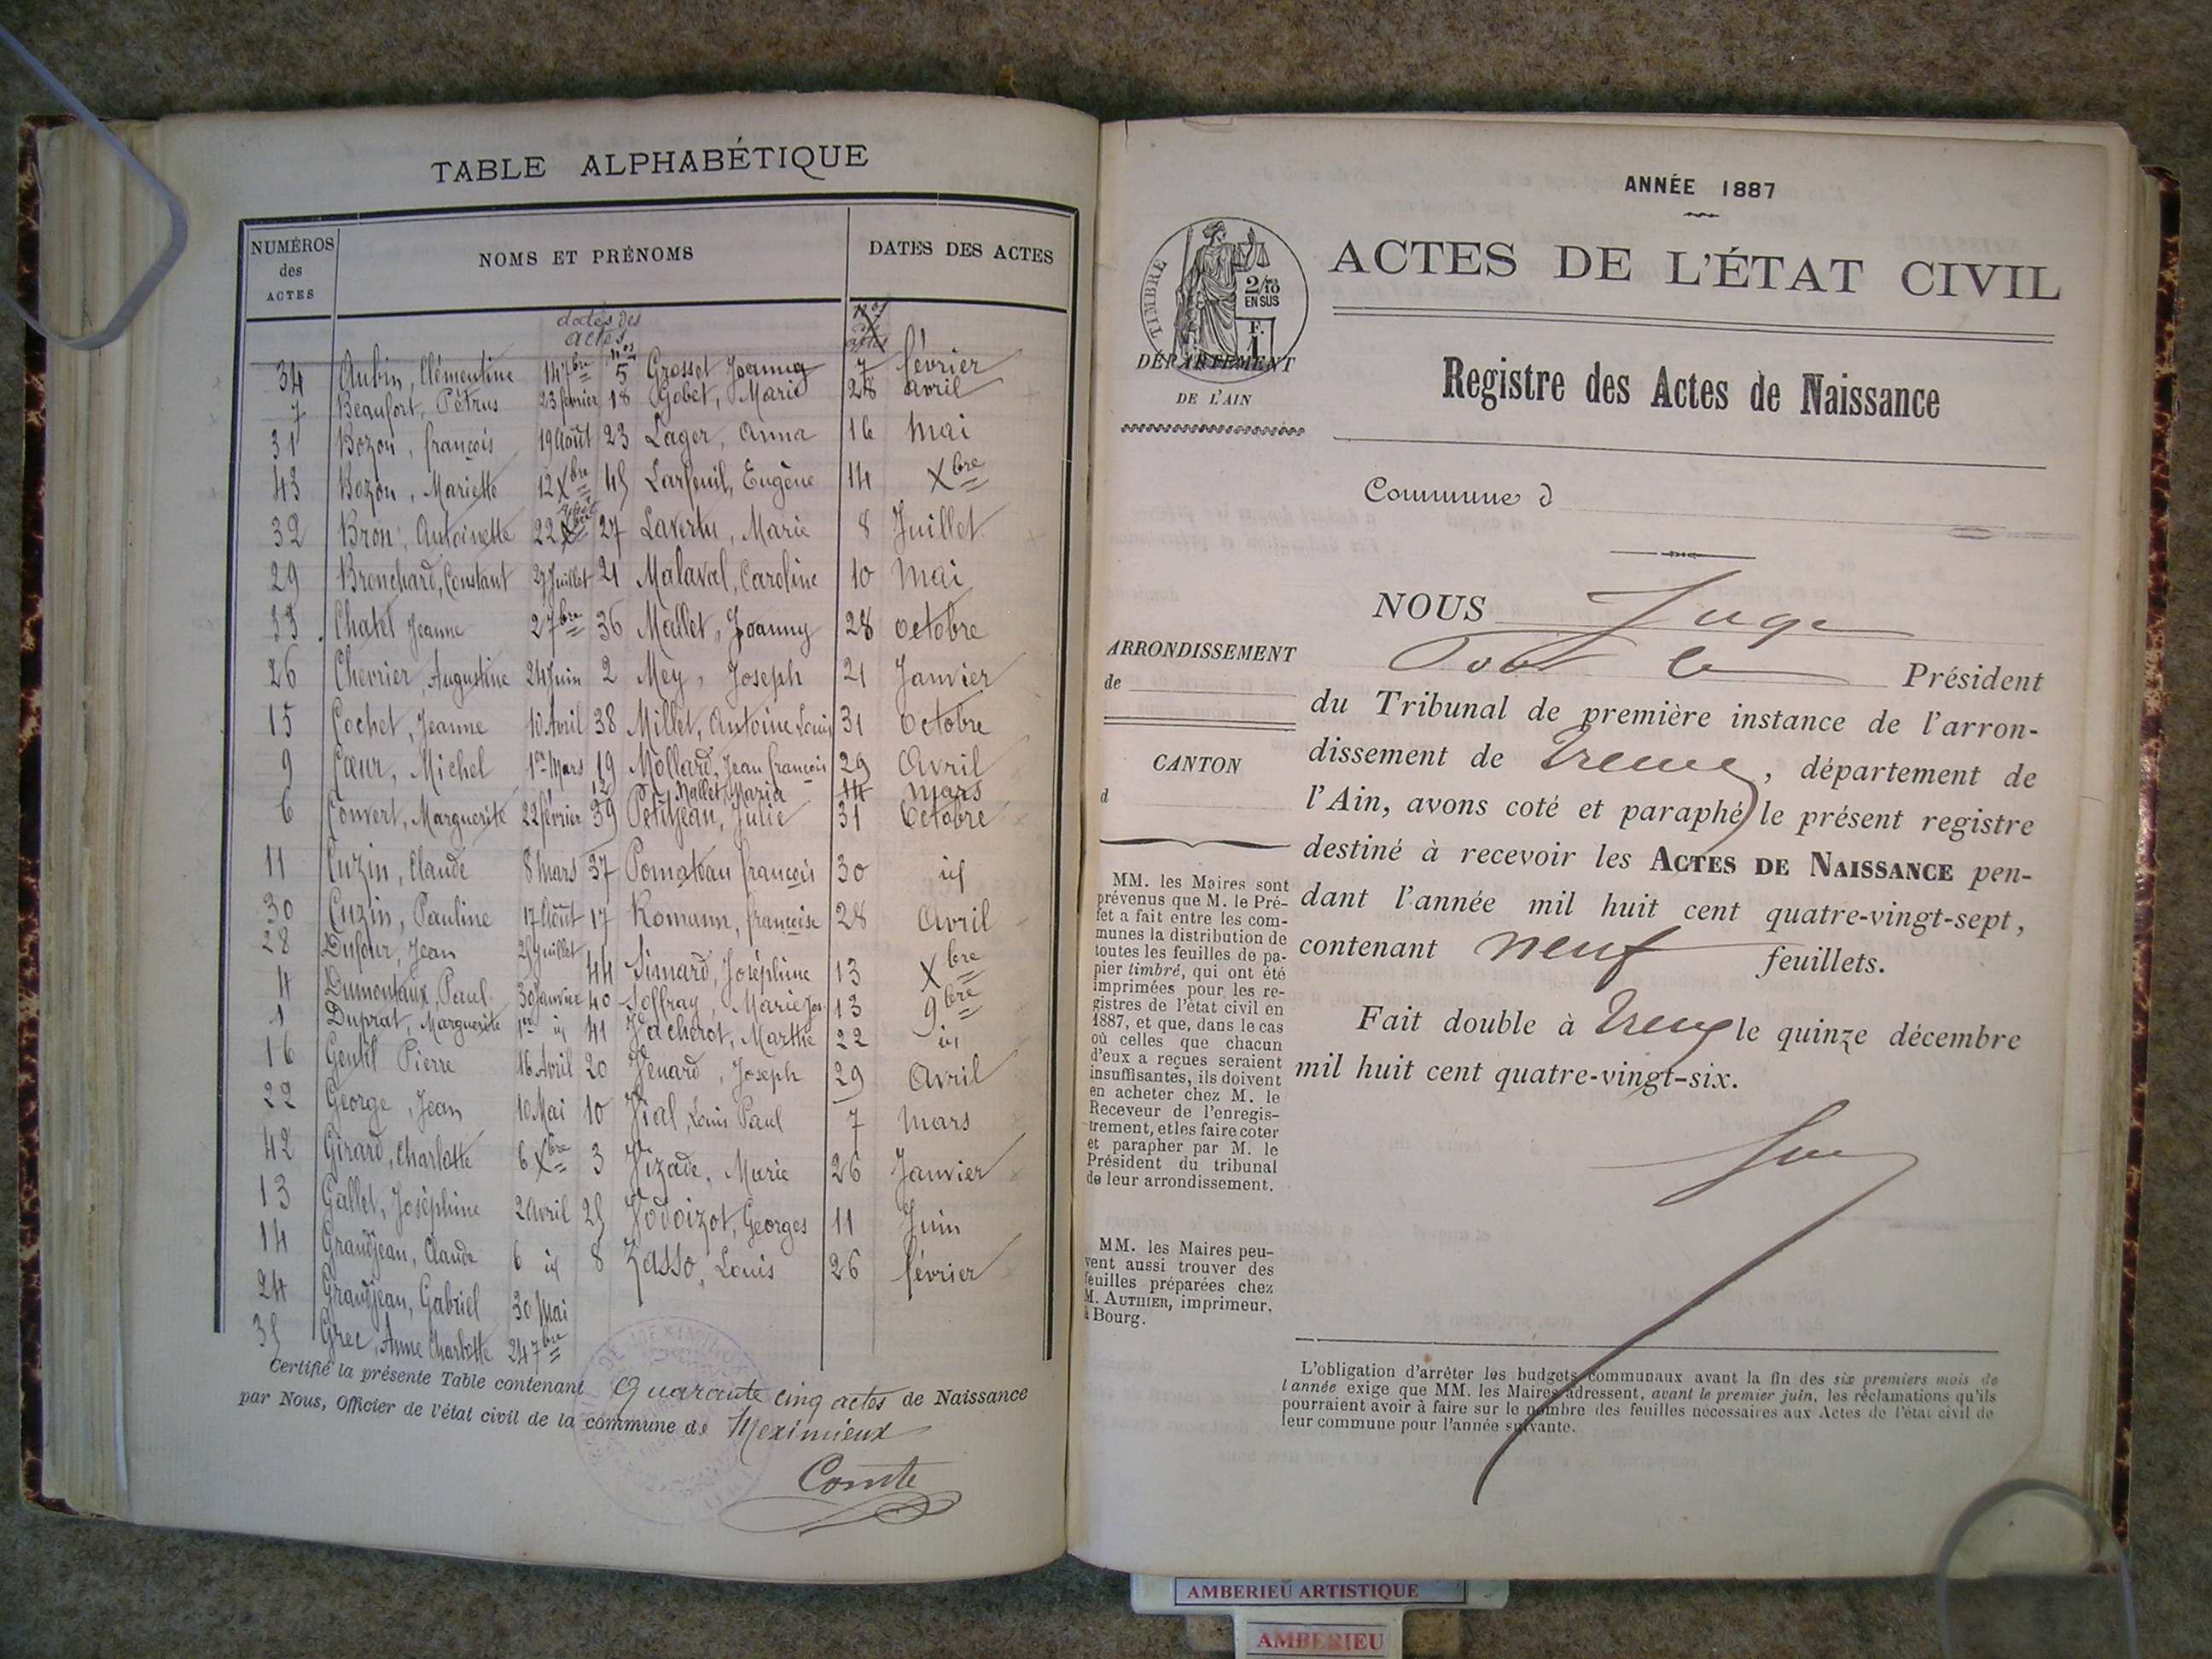 TABLE ALPHABÉTIQUE
NUMÉROS des ACTES
NOMS ET PRÉNOMS
DATES DES ACTES
dates des actes
nos
nos actes
34 Aubin, Clémentine 14 7bre 5 Grosset Joanny 7 février
7 Beaufort, Pétrus 23 février 18 Gobet, Marie 28 avril
31 Bozon, françois 19 Août 23 Lager, Anna 16 Mai
43 Bozon, Mariette 12 Xbre 45 Larfeuil, Eugène 14 Xbre
32 Bron, Antoinette 22 Août 27 Lavertu, Marie 8 Juillet
29 Bronchard, Constant 27 Juillet 21 Malaval, Caroline 10 Mai
33 Chatel Jeanne 2 7bre 36 Mallet, Joanny 28 octobre
26 Chevrier, Augustine 24 Juin 2 Mey, Joseph 21 Janvier
15 Cochet, Jeanne 10 Avril 38 Millet, Antoine Louis 31 Octobre
9 Cœur, Michel 1er Mars 19 Mollard, Jean françois 29 Avril
12 Mallet, Maria 14 mars
6 Convert, Marguerite 22 février 39 Petitjean, Julie 31 Octobre
11 Cuzin, Claude 8 Mars 37 Pomateau françois 30 id
30 Cuzin, Pauline 17 Août 17 Romann, françoise 28 Avril
28 Dufour, Jean 25 Juillet
44 Simard, Joséphine 13 Xbre
4 Dumontaux, Paul 30 Janvier 40 Soffray, Marie Jos. 13 9bre
1 Duprat, Marguerite 1er id 41 Vacherot, Marthe 22 id
16 Gentil Pierre 16 Avril 20 Venard, Joseph 29 Avril
22 George, Jean 10 Mai 10 Vial, Louis Paul 7 Mars
42 Girard, Charlotte 6 Xbre 3 Vizade, Marie 26 Janvier
13 Gallet, Joséphine 2 Avril 25 Vodoizot, Georges 11 Juin
14 Grandjean, Claude 6 id 8 Zasso, Louis 26 février
24 Grandjean, Gabriel 30 Mai
35 Grec, Anne Charlotte 24 7bre
Certifié la présente Table contenant quarante cinq actes de Naissance
par Nous, Officier de l'état civil de la commune de Meximieux
Comte
ANNÉE 1887
TIMBRE
2/10 EN SUS
F.
1
DÉPARTEMENT
DE L'AIN
ACTES DE L'ÉTAT CIVIL
Registre des Actes de Naissance
Commune d
ARRONDISSEMENT
de
CANTON
d
MM. les Maires sont
prévenus que M. le Pré-
fet a fait entre les com-
munes la distribution de
toutes les feuilles de pa-
pier timbré, qui ont été
imprimées pour les re-
gistres de l'état civil en
1887, et que, dans le cas
où celles que chacun
d'eux a reçues seraient
insuffisantes, ils doivent
en acheter chez M. le
Receveur de l'enregis-
trement, et les faire coter
et parapher par M. le
Président du tribunal
de leur arrondissement.
MM. les Maires peu-
vent aussi trouver des
feuilles préparées chez
M. AUTHIER, imprimeur,
à Bourg.
NOUS Juge
Pour le Président
du Tribunal de première instance de l'arron-
dissement de Trevoux, département de
l'Ain, avons coté et paraphé le présent registre
destiné à recevoir les ACTES DE NAISSANCE pen-
dant l'année mil huit cent quatre-vingt-sept,
contenant neuf feuillets.
Fait double à Trevoux le quinze décembre
mil huit cent quatre-vingt-six.
L'obligation d'arrêter les budgets communaux avant la fin des six premiers mois de
l'année exige que MM. les Maires adressent, avant le premier juin, les réclamations qu'ils
pourraient avoir à faire sur le nombre des feuilles nécessaires aux Actes de l'état civil de
leur commune pour l'année suivante.
AMBERIEU ARTISTIQUE
AMBERIEU